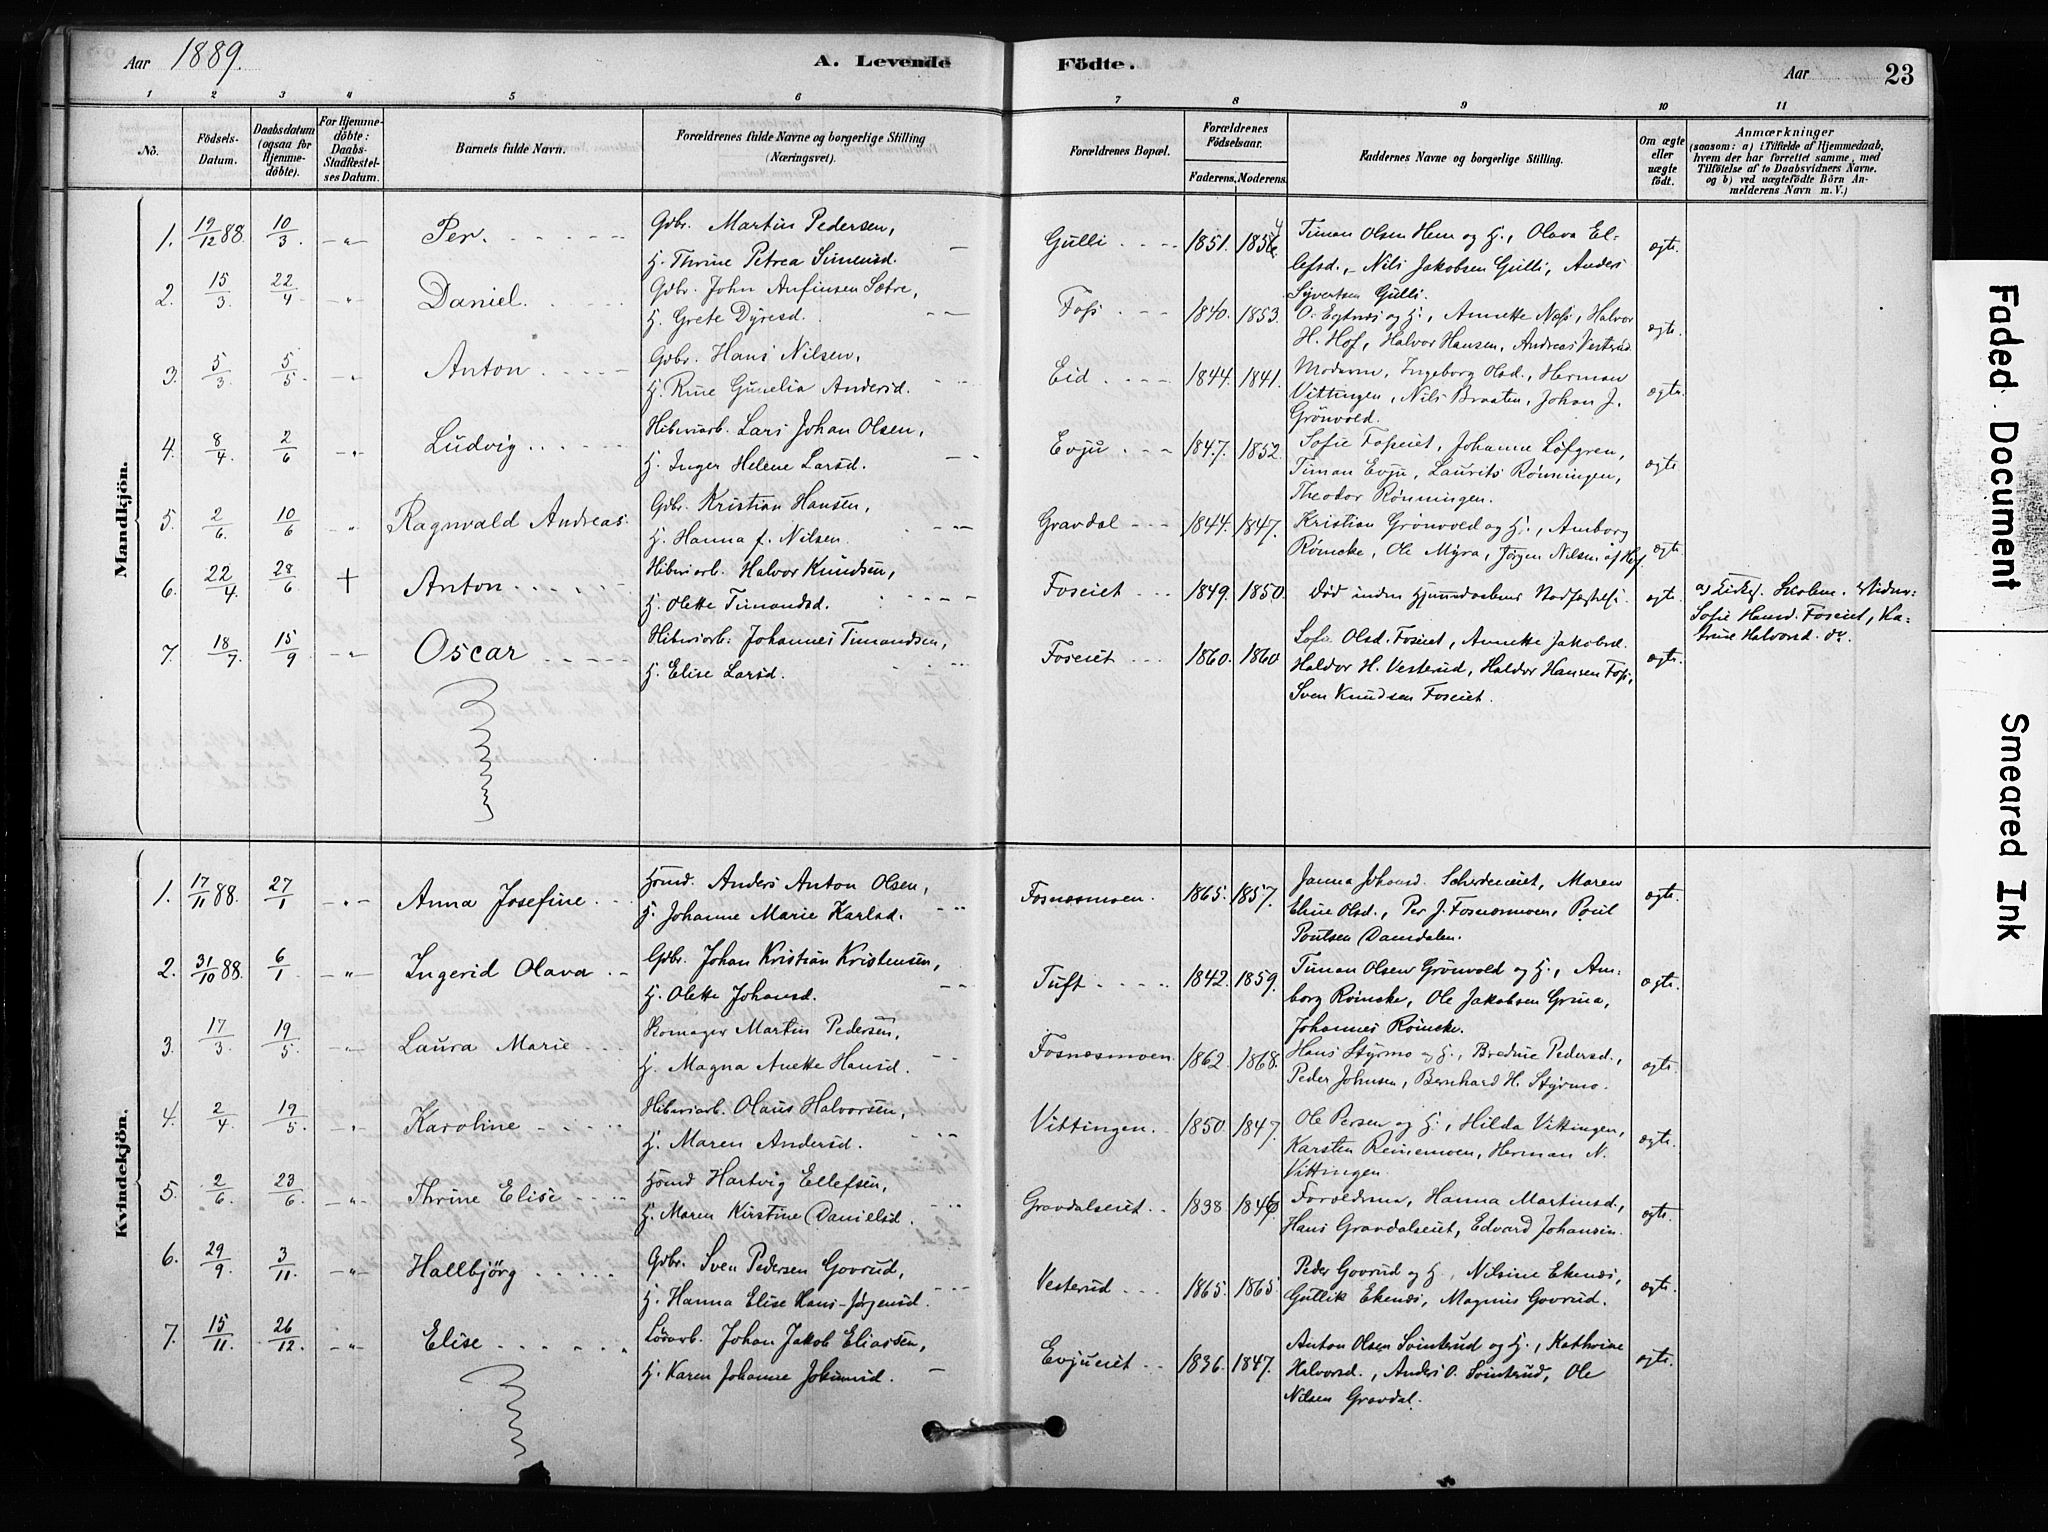 Aar 1889.
A. Levende Födte.
Aar 23
1 2 3 4 5 6 7 8 9 10 11
No.
Födsels-
Datum.
Daabsdatum
(ogsaa for
Hjemme-
döbte).
For Hjemme-
döbte:
Daabs-
Stadfæstel-
ses Datum.
Barnets fulde Navn.
Forældrenes fulde Navne og borgerlige Stilling
(Næringsvei).
Forældrenes Bopæl.
Forældrenes
Födselsaar.
Faderens. Moderens.
Faddernes Navne og borgerlige Stilling.
Om ægte
eller
uægte
födt.
Anmærkninger
(saasom: a) i Tilfælde af Hjemmedaab,
hvem der har forrettet samme, med
Tilföielse af to Daabsvidners Navne.
og b) ved uægtefödte Börn An-
melderens Navn m. V.)
Mandkjön.
1. 19/12 88. 10/3 -„- Per.
Gdbr. Martin Pedersen,
H. Thrine Petrea Simensd.
Gulli 1851. 185
Timan Olsen Hem og H., Olava El-
lefsd., Nils Jakobsen Gulli, Anders
Syvertsen Gulli.
ægte.
2. 15/3 22/4 -„- Daniel.
Gdbr. John Anfinsen Sætre,
H. Grete Dyresd.
Foss 1840. 1853.
O. Egtnes og H., Annette Næss, Halvor
H. Hof, Halvor Hansen, Andreas Vesterud
ægte.
3. 5/3 5/5 -„- Anton
Gdbr. Hans Nilsen,
H. Rine Gunelia Andersd.
Eid 1844. 1841.
Moderen, Ingeborg Olsd., Herman
Vittingen, Nils Braaten, Johan J.
Grönvold.
ægte.
4. 8/4 2/6 -„- Ludvig
Hiberiarb. Lars Johan Olsen,
H. Inger Helene Larsd.
Evju 1847. 1852.
Sofie Fosseiet, Johanne Löfgren,
Timan Evju, Laurits Rönningen,
Theodor Rönningen.
ægte.
5. 2/6 10/6 „ Ragnvald Andreas.
Gdbr. Kristian Hansen,
H. Hanna f. Nilsen.
Gravdal 1844. 1847.
Kristian Grönvold og H., Amborg
Römcke, Ole Myra, Jörgen Nilsen af Hof
ægte.
6. 22/4 28/6 + Anton
Hiberiarb. Halvor Knudsen,
H. Olette Timandsd.
Foseiet 1849. 1850.
Död inden Hjemmedaabens Stadfæstelse.
ægte.
Sofie Hansd. Foseiet, Ka-
trine Halvorsd. do.
7. 18/7 15/9 „ Oscar
Hiberiarb. Johannes Timandsen,
H. Elise Larsd.
Foseiet 1860. 1860
Sofie Olsd. Foseiet, Annette Jakobsd.
Haldor H. Vesterud, Haldor Hansen Foss,
Sven Knudsen Foseiet.
ægte.
Kvindekjön.
1. 17/11 88. 27/1 -„- Anna Josefine
Hömd. Anders Anton Olsen,
H. Johanne Marie Karlsd.
Fosnæsmoen. 1865. 1857.
Janna Johansd. Maren
Eline Olsd., Per J. Fosnæsmoen, Poul
Poulsen Damdalen.
ægte.
2. 31/10 88. 6/1 -„- Ingerid Olava
Gdbr. Johan Kristian Kristensen,
H. Olette Johansd.
Tuft 1842. 1859.
Timan Olsen Grönvold og H., Am-
borg Römcke, Ole Jakobsen Grina,
Johannes Römcke.
ægte.
3. 17/3 19/5 -„- Laura Marie
Skomager Martin Pedersen,
H. Magna Anette Hansd.
Fosnæsmoen 1862. 1868.
Hans Styrmo og H., Bredine Pedersd.,
Peder Johnsen, Bernhard H. Styrmo.
ægte.
4. 2/4 19/5 „ Karoline
Hiberiarb. Olaus Halvorsen,
H. Maren Andersd.
Vittingen. 1850 1847.
Ole Persen og H., Hilda Vittingen,
Karsten Reinemoen, Herman N.
Vittingen.
ægte.
5. 2/6 23/6 -„- Thrine Elise
Hömd Hartvig Ellefsen,
H. Maren Kirstine Danielsd.
Gravdalseiet 1838 1846.
Forældrene, Hanna Martinsd.,
Hans Gravdalseiet, Edvard Johansen.
ægte.
6. 29/9 3/11 -„- Hallbjörg
Gdbr. Sven Pedersen Govrud,
H. Hanna Elise Hans-Jörgensd.
Vesterud 1865. 1865
Peder Govrud og H., Nilsine Ekenes,
Gutlik Ekenes, Magnus Govrud.
ægte.
7. 15/11 26/12 -„- Elise
Lösarb. Johan Jakob Eliassen,
H. Karen Johanne Jokumsd.
Evjueiet 1836. 1847.
Anton Olsen Svinterud og H., Kathrine
Halvorsd., Anders O. Svinterud, Ole
Nilsen Gravdal.
ægte.
Faded Document
Smeared Ink